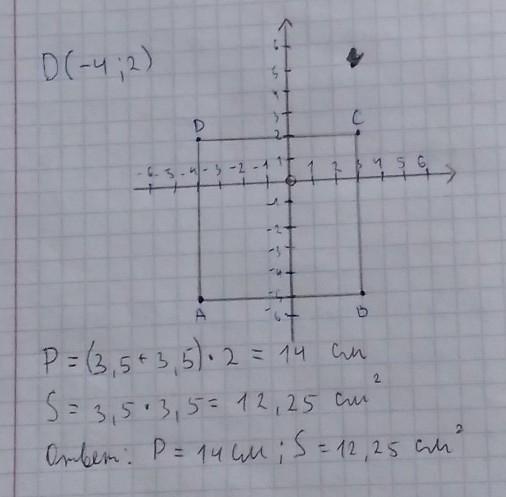 D(-4;2)
6
5
4
3
D C
2
-6 -5 -4 -3 -2 -1 1 1 2 3 4 5 6
-1
-2
-3
-4
-5
A B
-6
P = (3,5 + 3,5) · 2 = 14 см
S = 3,5 · 3,5 = 12,25 см²
Ответ: P = 14 см ; S = 12,25 см²